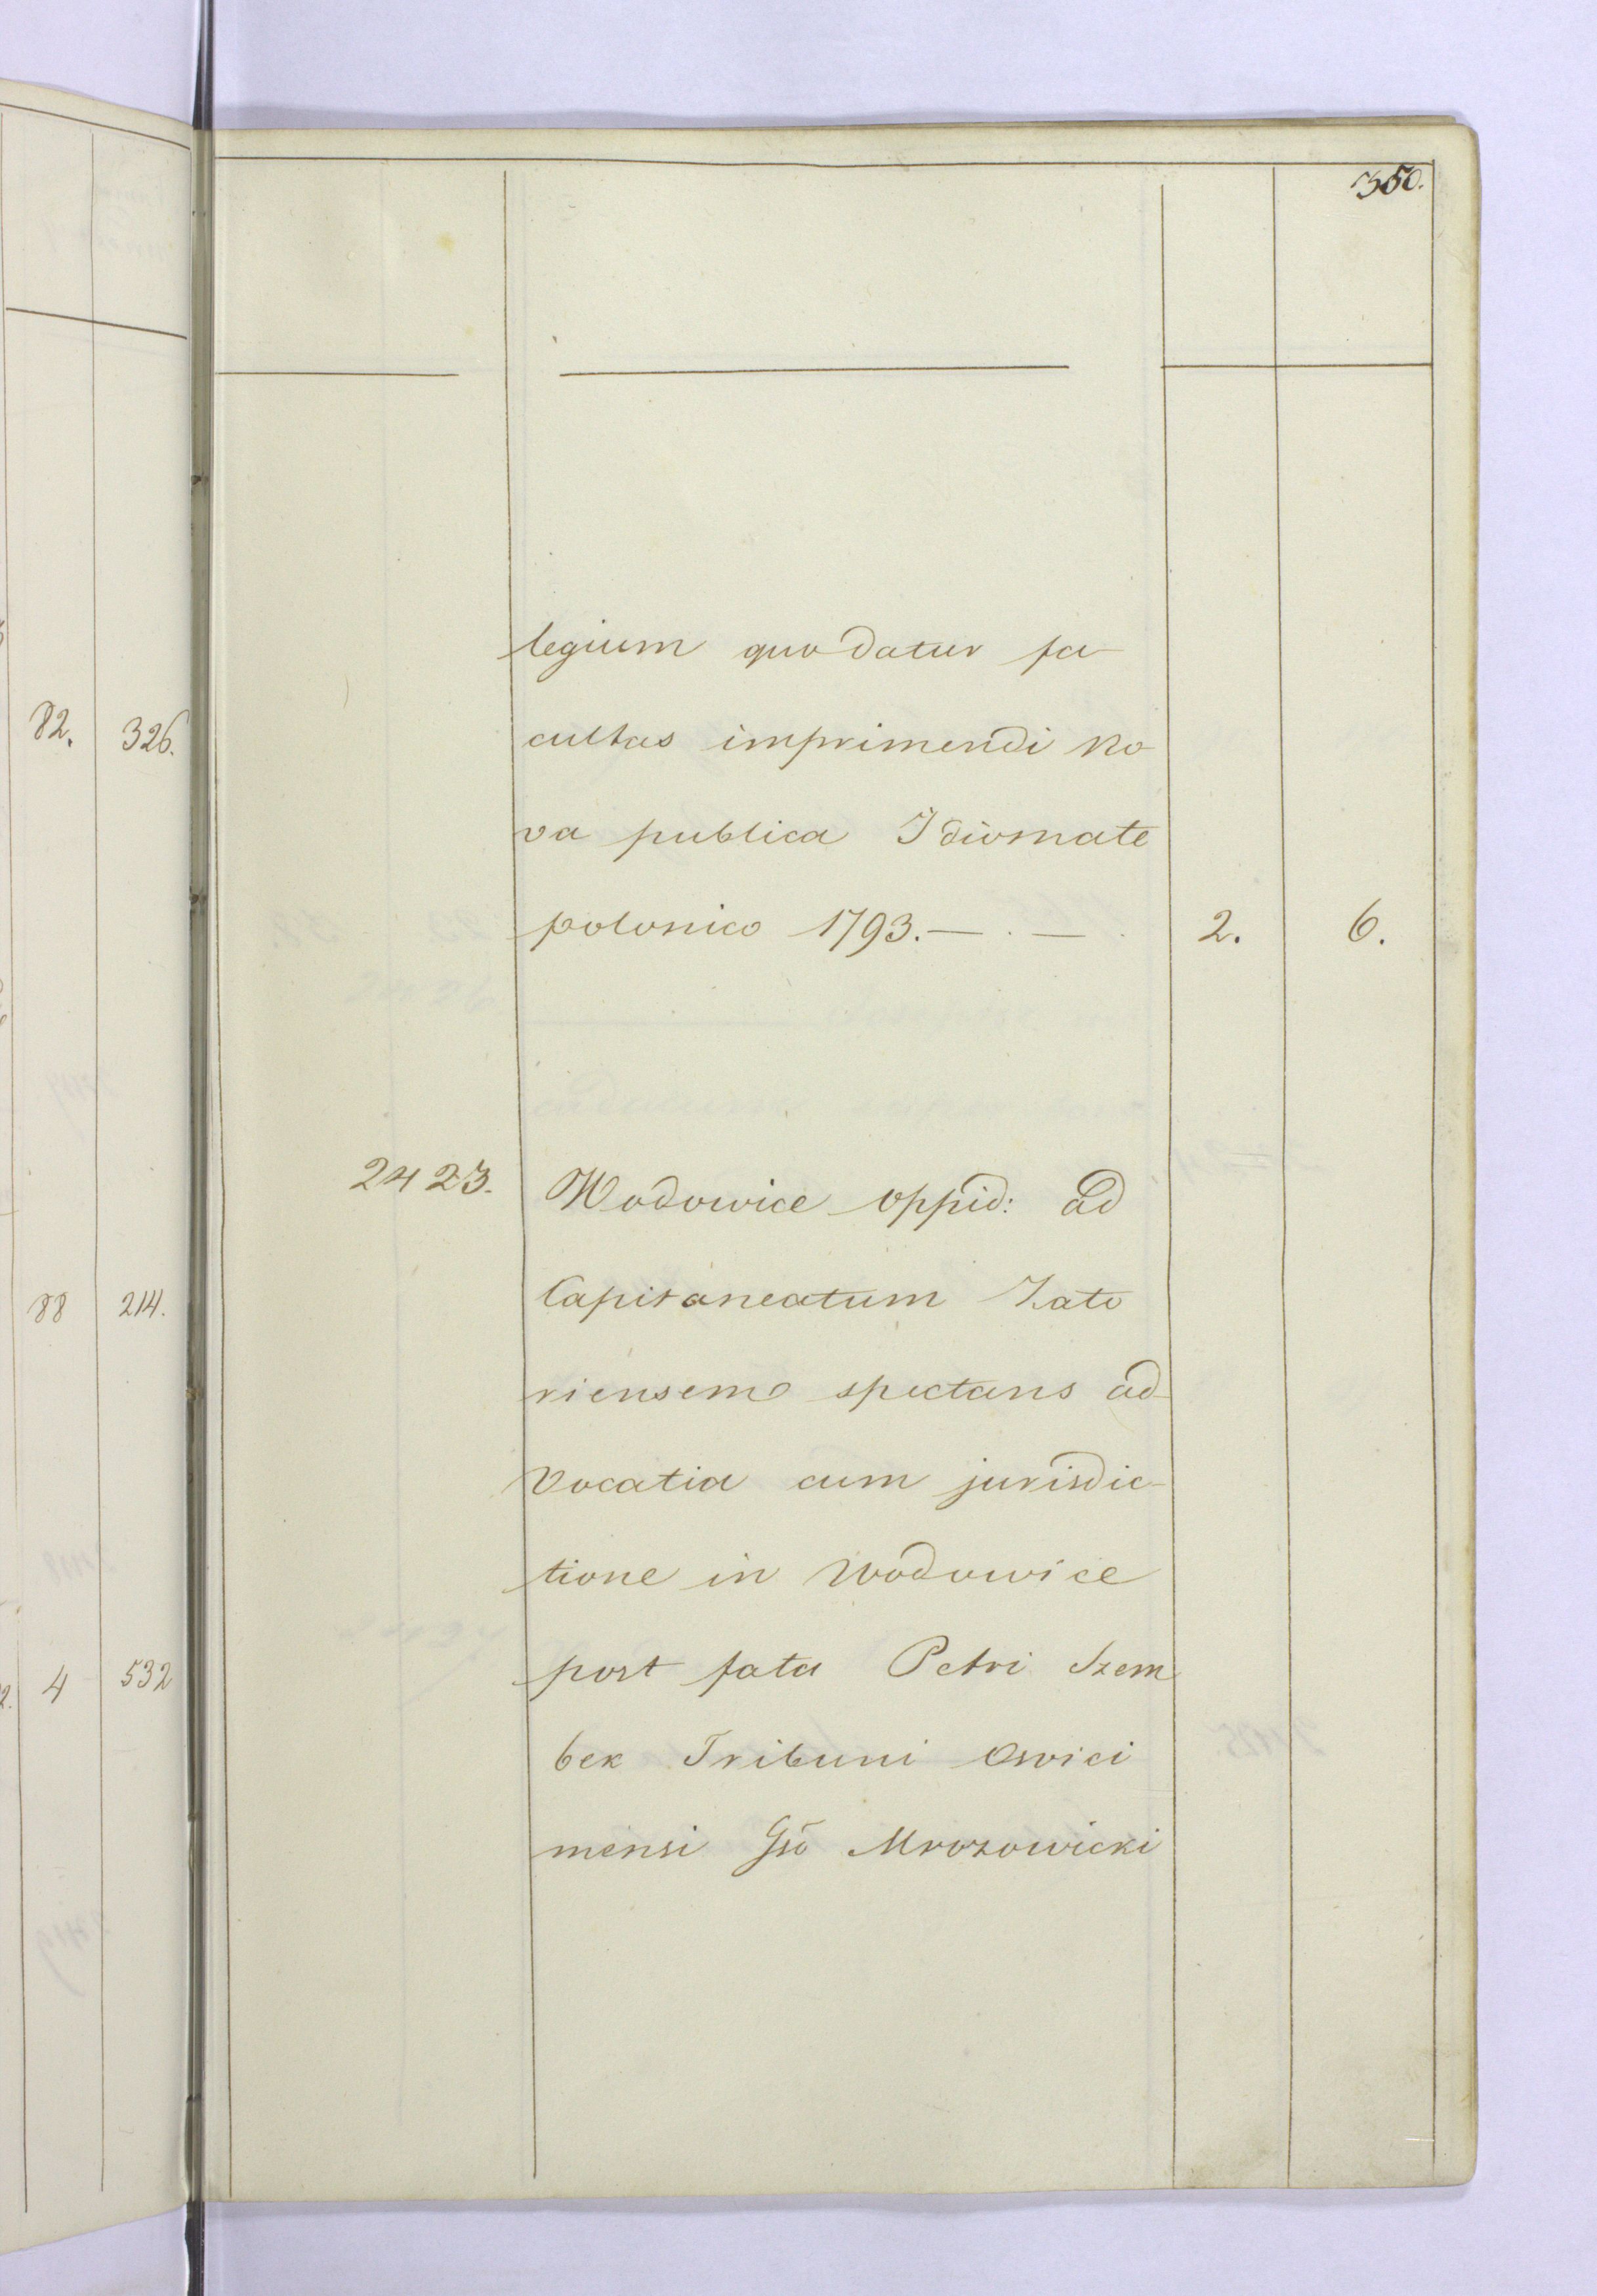 350.
82. 326.
88 214.
4 532
legium quo datur fa-
cultas imprimendi No-
va publica Idiomate
polonico 1793. — . — 2. 6.
2423. Wodowice oppid: ad
Capitaneatum Zato
riensem spectans ad-
vocatia cum jurisdic-
tione in Wodowice
post fata Petri Szem
bek Tribuni Oswici
mensi Gsō Mrozowicki